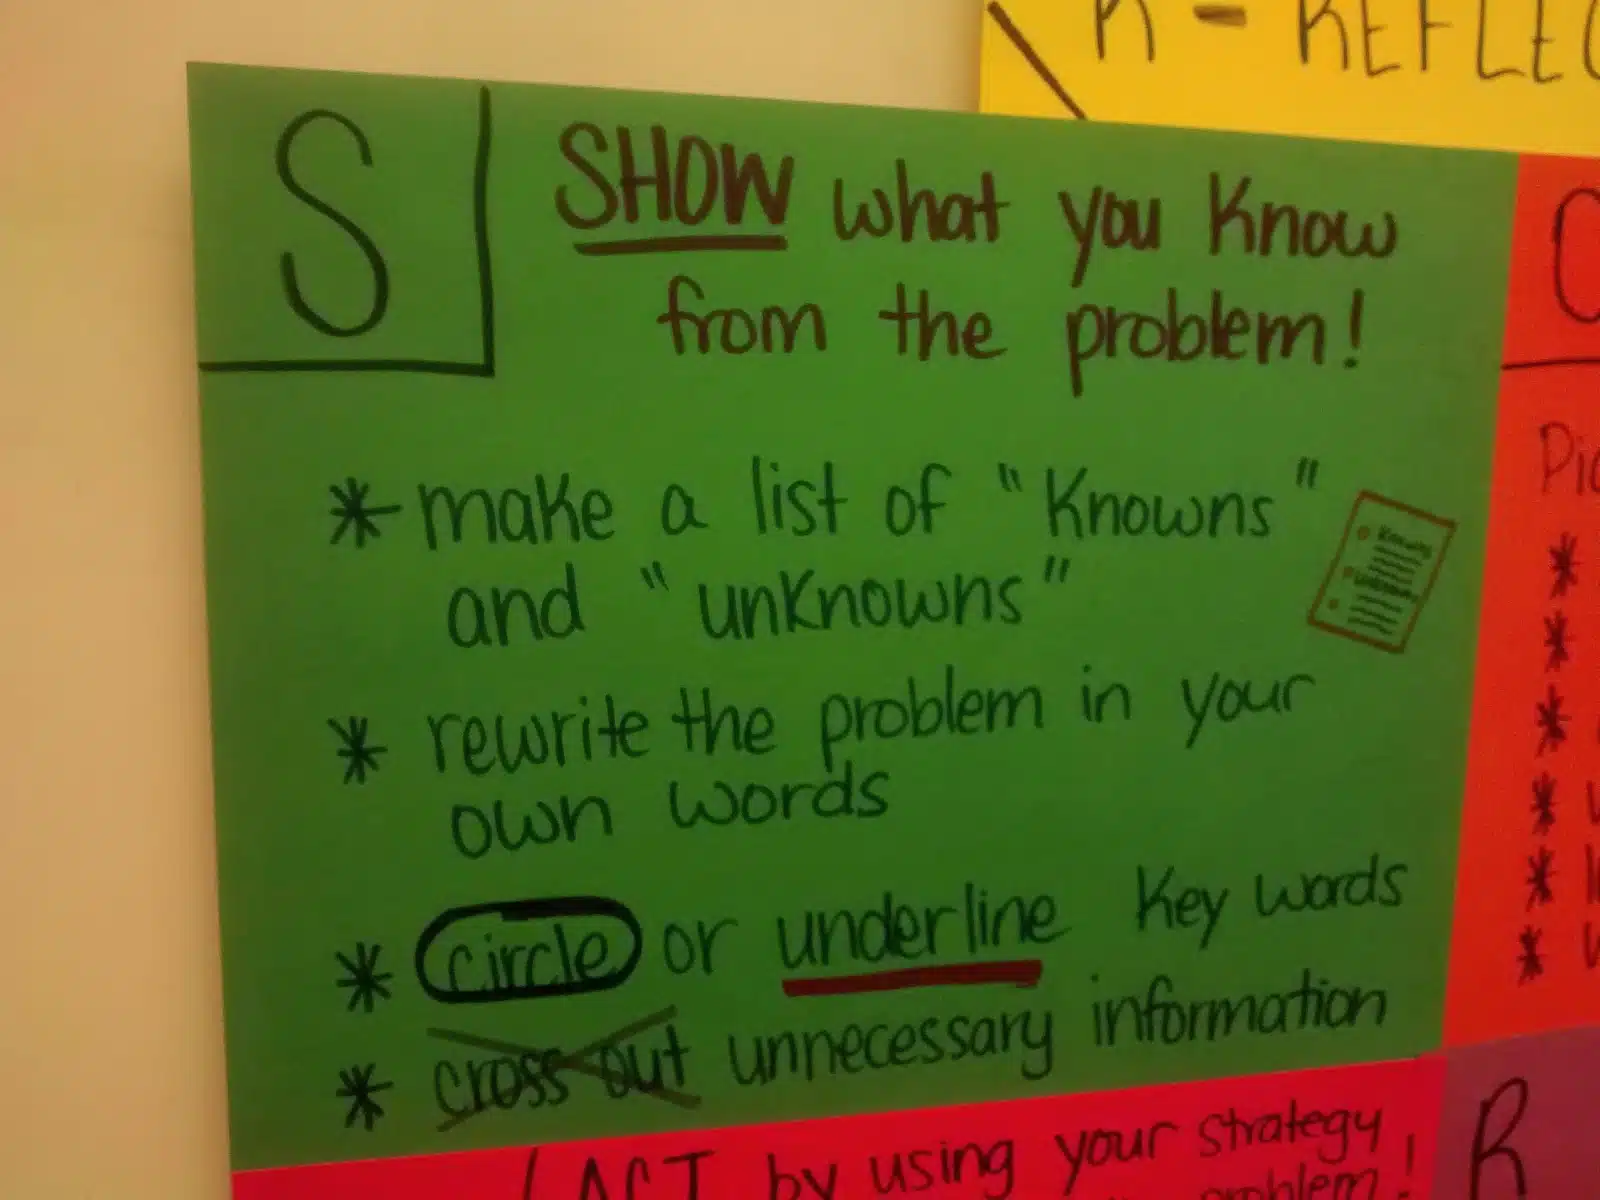 R - REFLEC
S
SHOW what you know
from the problem!
* make a list of "knowns"
and "unknowns"
Knowns
unknowns
* rewrite the problem in your
own words
* circle or underline key words
* cross out unnecessary information
ACT by using your strategy
problem!
C
Pic
*
*
*
*
*
*
R